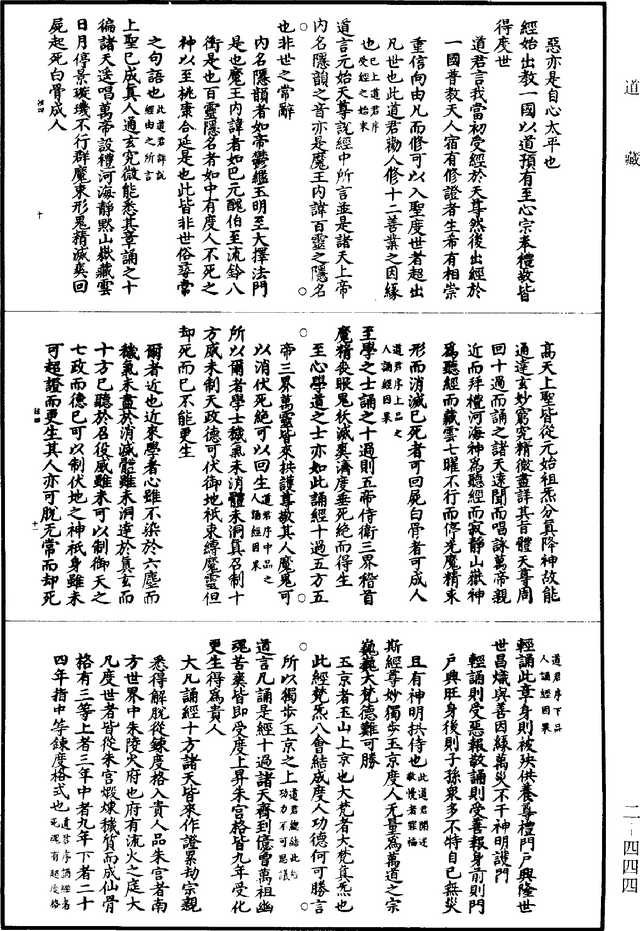 道藏
二－四四四
惡亦是自心太平也
經始出教一國以道預有至心宗奉禮敬皆
得度世
道君言我當初受經於天尊然後出經於
一國普教天人宿有修證者生希有相崇
重信向由凡而修可以入聖度世者超出
凡世也此道君勸人修十二善業之因緣
也已上道君序受經之始末
道言元始天尊說經中所言並是諸天上帝
內名隱韻之音亦是魔王內諱百靈之隱名
也非世之常辭
內名隱韻者如帝鬱繼玉明至大擇法門
是也魔王內諱者如巴元醜伯至流鈴八
衝是也百靈隱名者如中有度人不死之
神以至桃康合延是也此皆非世俗尋常
之句語也此道君詳説經由之所言
上聖已成真人通玄究微能悉其章誦之十
徧諸天遙唱萬帝設禮河海靜默山嶽藏雲
日月停景璇璣不行群魔束形鬼精滅爽回
屍起死白骨成人
高天上聖皆從元始祖炁分真降神故能
通達玄妙窮究精微盡詳其旨體天尊周
回十過而誦之諸天遠聞而唱詠萬帝親
近而拜禮河海神為聽經而寂靜山嶽神
為聽經而藏雲七曜不行而停光魔精束
形而消滅已死者可回屍白骨者可成人
道君序上品之人誦經因果
至學之士誦之十過則五帝侍衛三界稽首
魔精喪眼鬼妖滅爽濟度垂死絕而得生
至心學道之士亦如此誦經十過五方五
帝三界萬靈皆來拱護尊敬其人魔鬼可
以消伏死絕可以回生道君序中品之人誦經因果
所以爾者學士穢氣未消體未洞真召制十
方威未制天政德可伏御地祇束縛魔靈但
却死而已不能更生
爾者近也近來學者心雖不染於六塵而
穢氣未盡於消滅體雖未洞達於真玄而
十方已聽於召役威雖未可以制御天之
七政而德已可以制伏地之神祇身雖未
可超證而更生其人亦可脫无常而却死
道君序下品人誦經因果
輕誦此章身則被殃供養尊禮門戶興隆世
世昌熾與善因緣萬災不干神明護門
輕誦則受惡報敬誦則受善報身前則門
戶興旺身後則子孫衆多不特自已無災
且有神明拱侍也此道君開述敬慢者罪福
斯經尊妙獨步玉京度人无量為萬道之宗
巍巍大梵德難可勝
玉京者玉山上京也大梵者大梵真炁也
此經梵炁八會結成度人功德何可勝言
所以獨步玉京之上道君總結此經功力不可思議
道言凡誦是經十過諸天齊到億曾萬祖幽
魂苦爽皆即受度上昇朱宮格皆九年受化
更生得為貴人
大凡誦經十方諸天皆來作證累劫宗親
悉得解脫從鍊度格入貴人品朱宮者南
方世界中朱陵火府也府有流火之庭大
凡度世者皆從朱宮煅煉穢質而成仙骨
格有三等上者三年中者九年下者二十
四年指中等鍊度格式也道君序誦經者死魂有超度格